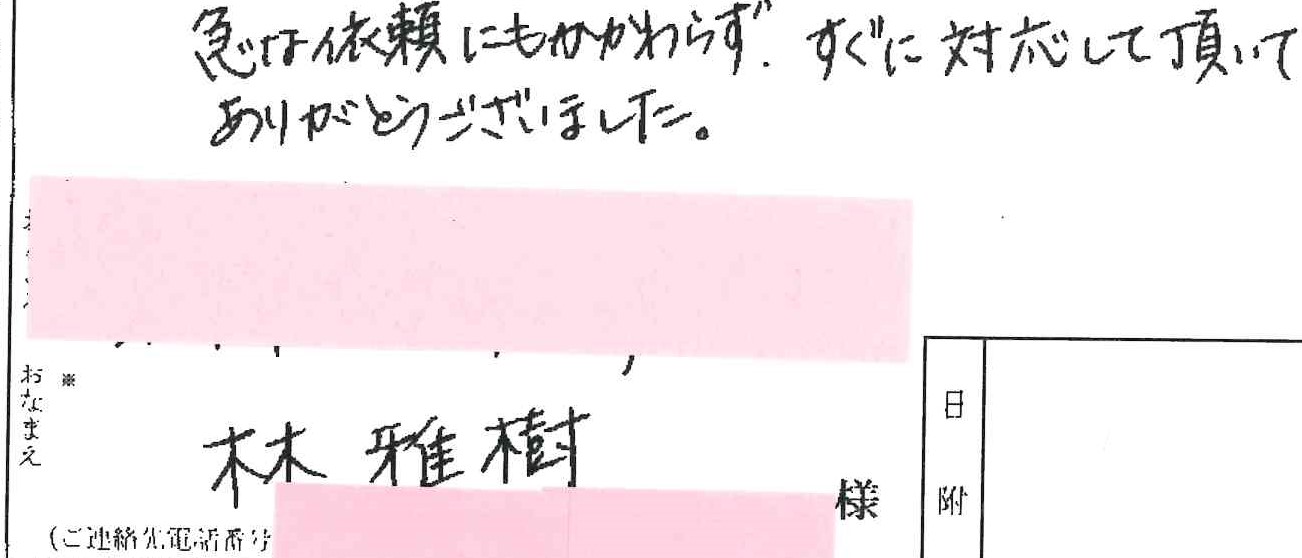 急な依頼にもかかわらず、すぐに対応して頂いて
ありがとうございました。
おなまえ
※
林 雅樹
様
日附
(ご連絡先電話番号